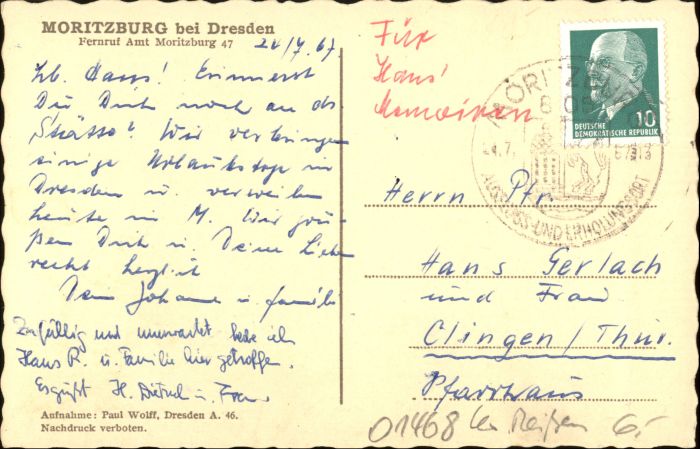 MORITZBURG bei Dresden
Fernruf Amt Moritzburg 47
24/7.67.
Lb. Hans! Erinnerst
Du Dich noch an ds.
"Stätte"? Wir verbringen
einige Urlaubstage in
Dresden u. verweilen
heute in M. Wir grü-
ßen Dich u. Deine Lieben
recht herzlich
Dein Johannes u. Familie
Zufällig und unerwartet habe ich
Hans R. u. Familie hier getroffen.
Es grüßt H. u. Frau
Aufnahme: Paul Wolff, Dresden A. 46.
Nachdruck verboten.
Für
Hans'
Memoiren
10
DEUTSCHE
DEMOKRATISCHE REPUBLIK
MORITZBURG
8105
24.7.
AUSFLUGS- UND ERHOLUNGSORT
Herrn Pfr.
Hans Gerlach
und Frau
Clingen/Thür.
Pfarrhaus
01468 b. Meißen 6,-